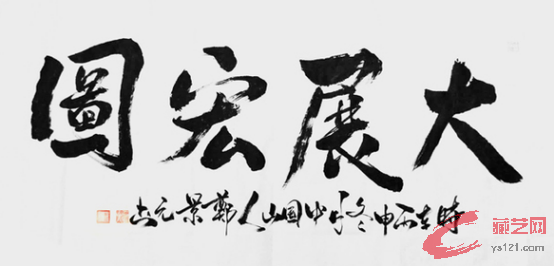 大展宏圖
時在丙申冬月中國山人鄭景元書
藏艺网
ys121.com